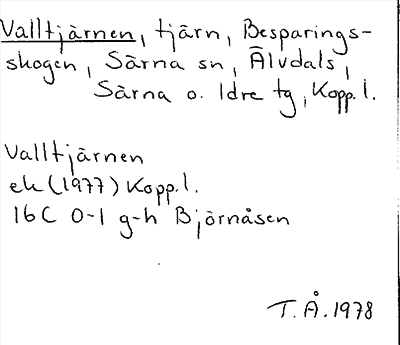 Valltjärnen, tjärn, Besparings-
skogen, Särna sn, Älvdals,
Särna o. Idre tg, Kopp. l.
Valltjärnen
ek (1977) Kopp. l.
16C 0-1 g-h Björnåsen
T. Å. 1978